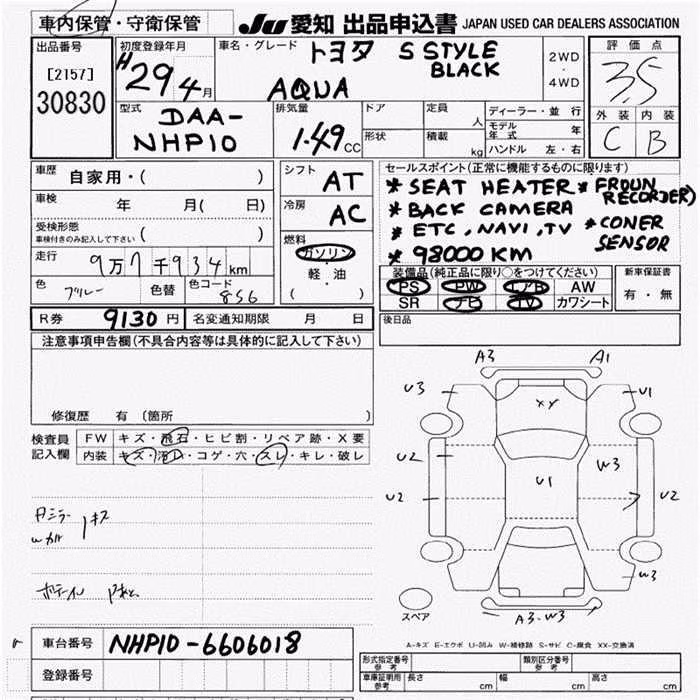 車内保管・守衛保管
JU 愛知 出品申込書 JAPAN USED CAR DEALERS ASSOCIATION
出品番号
[2157]
30830
初度登録年月
H29年4月
車名・グレード
トヨタ S STYLE
BLACK
AQUA
2WD
・
4WD
評価点
3.5
外装 内装
C B
型式
DAA-
NHP10
排気量
1.49CC
ドア
形状
定員 人
積載 kg
ディーラー・並行
モデル年式 年
ハンドル 左・右
車歴 自家用・( )
車検 年 月( 日)
受検形態
車検付きのみ記入して下さい ( )
走行 9万7千934km
色 色替 色コード 8S6
シフト AT
冷房 AC
燃料
ガソリン
軽・油
( )
セールスポイント(正常に機能するものに限ります)
* SEAT HEATER * FROUN RECORDER)
* BACK CAMERA
* ETC, NAVI, TV * CONER SENSOR
* 98000 KM
装備品(純正品に限り○をつけてください)
PS PW エアB AW
SR ナビ TV カワシート
新車保証書
有・無
R券 9130円 名変通知期限 月 日
後日品
注意事項申告欄(不具合内容等は具体的に記入して下さい)
修復歴 有〔箇所 〕
検査員
記入欄
FW キズ・飛石・ヒビ割・リペア跡・X要
内装 キズ・汚レ・コゲ・穴・スレ・キレ・破レ
キズ
A3 A1
U3 U1
XY
U2 W3
U1
U2 U2
W3
A3-W3
スペア
A-キズ E-エクボ U-凹み W-補修跡 S-サビ C-腐食 XX-交換済
車台番号 NHP10-6606018
登録番号
形式指定番号
参考
類別区分番号
参考
車庫証明用
参考
長さ cm 幅 cm 高さ cm